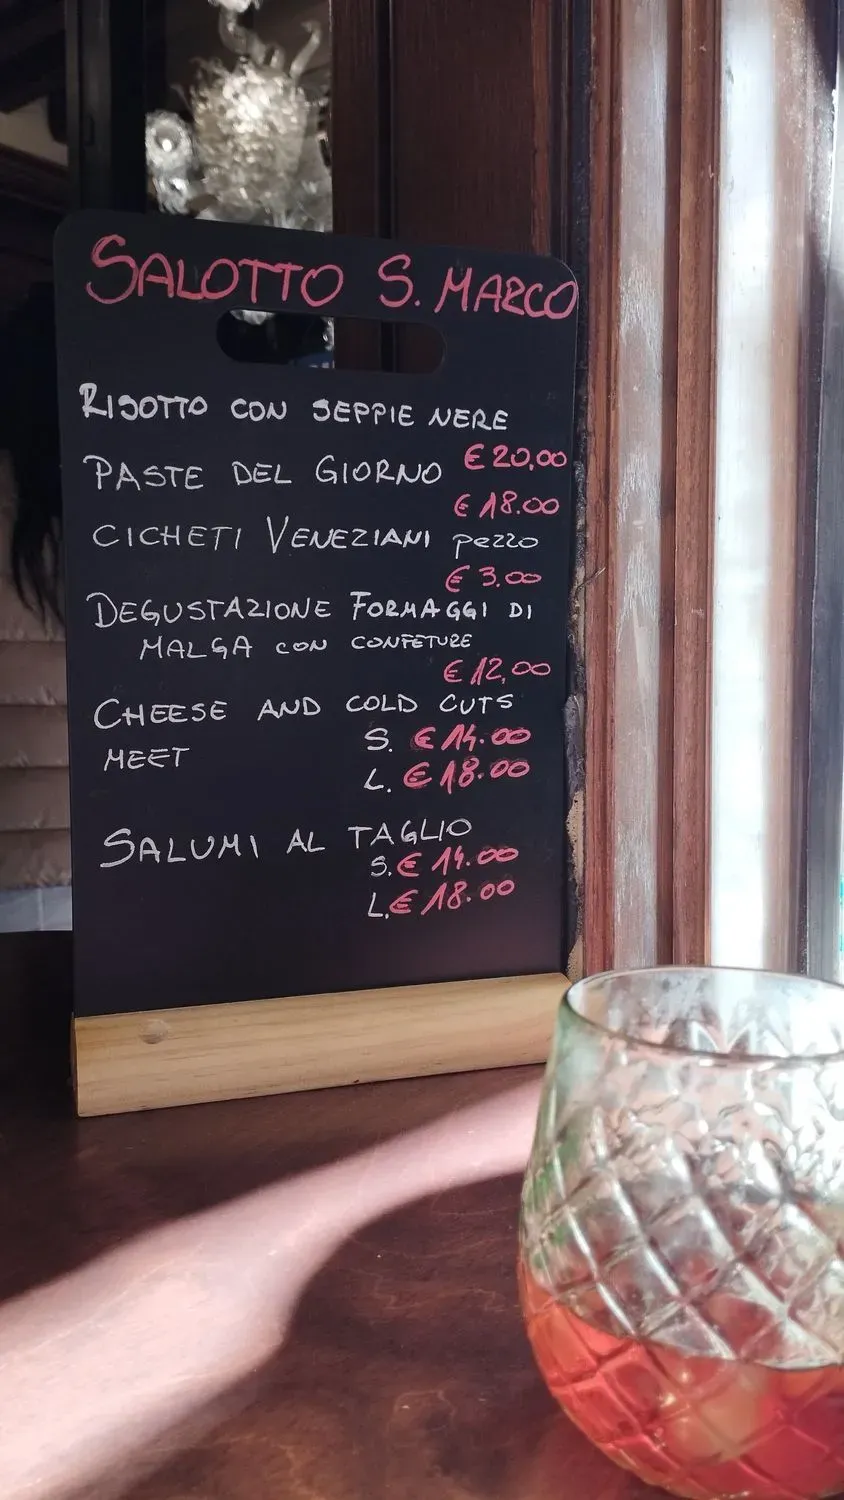 SALOTTO S. MARCO
RISOTTO CON SEPPIE NERE
€ 20,00
PASTE DEL GIORNO
€ 18.00
CICHETI VENEZIANI pezzo
€ 3.00
DEGUSTAZIONE FORMAGGI DI
MALGA CON CONFETURE
€ 12,00
CHEESE AND COLD CUTS
MEET S. € 14.00
L. € 18.00
SALUMI AL TAGLIO
S. € 14.00
L. € 18.00